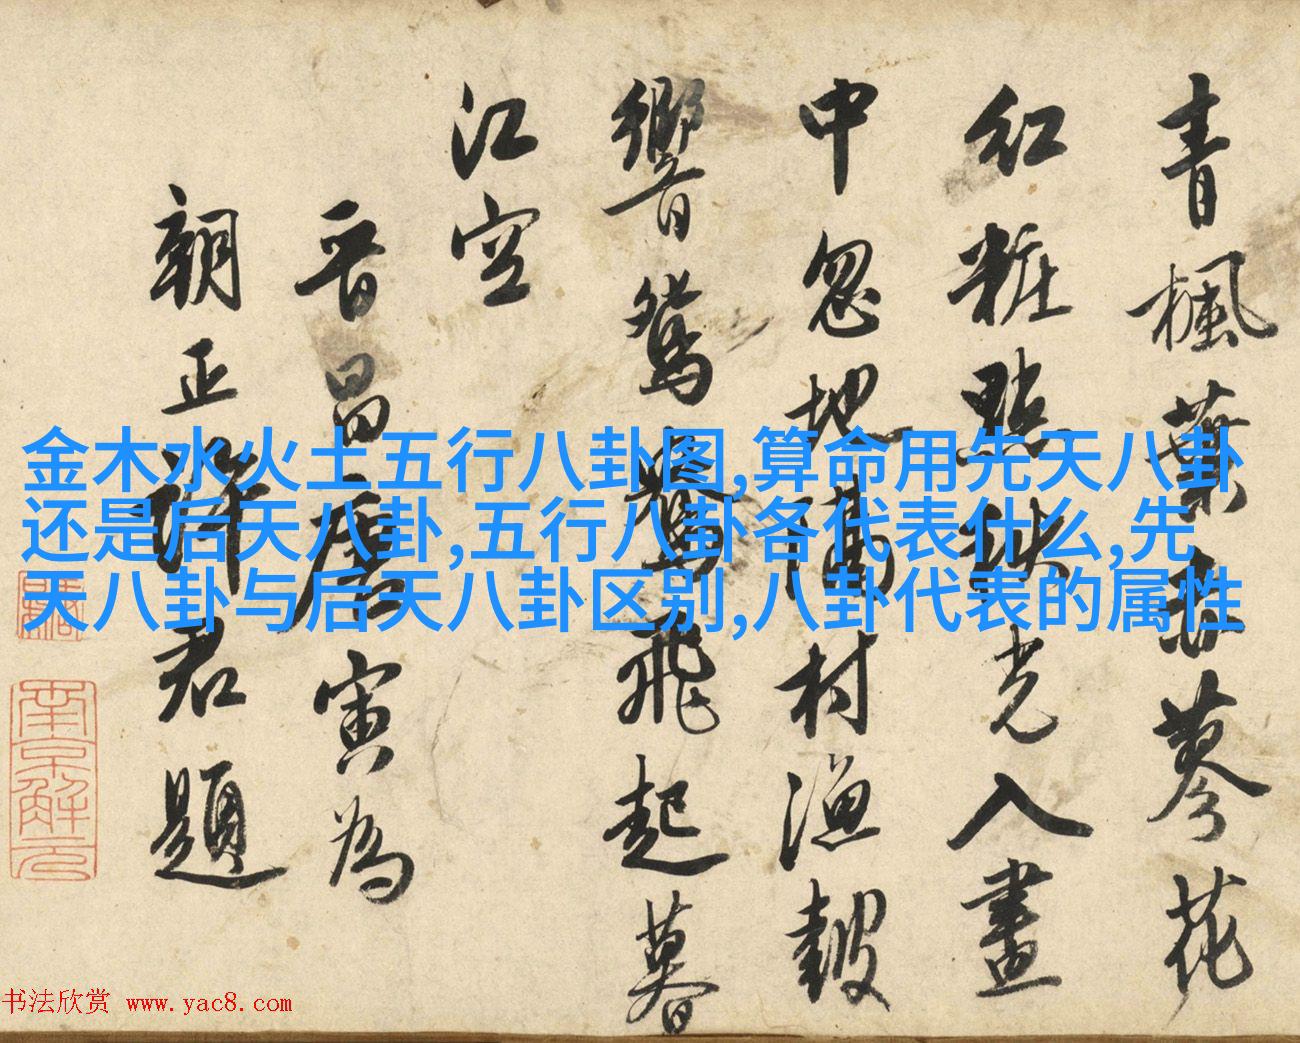 青楓葉蓼花
紅粧點秋光入畫
中忽地隔村漁鼓
響鴛鴦飛起暮
江空
晉昌唐寅為
朝正君題
南京解元
金木水火土五行八卦图,算命用先天八卦
还是后天八卦,五行八卦各代表什么,先
天八卦与后天八卦区别,八卦代表的属性
书法欣赏 www.yac8.com